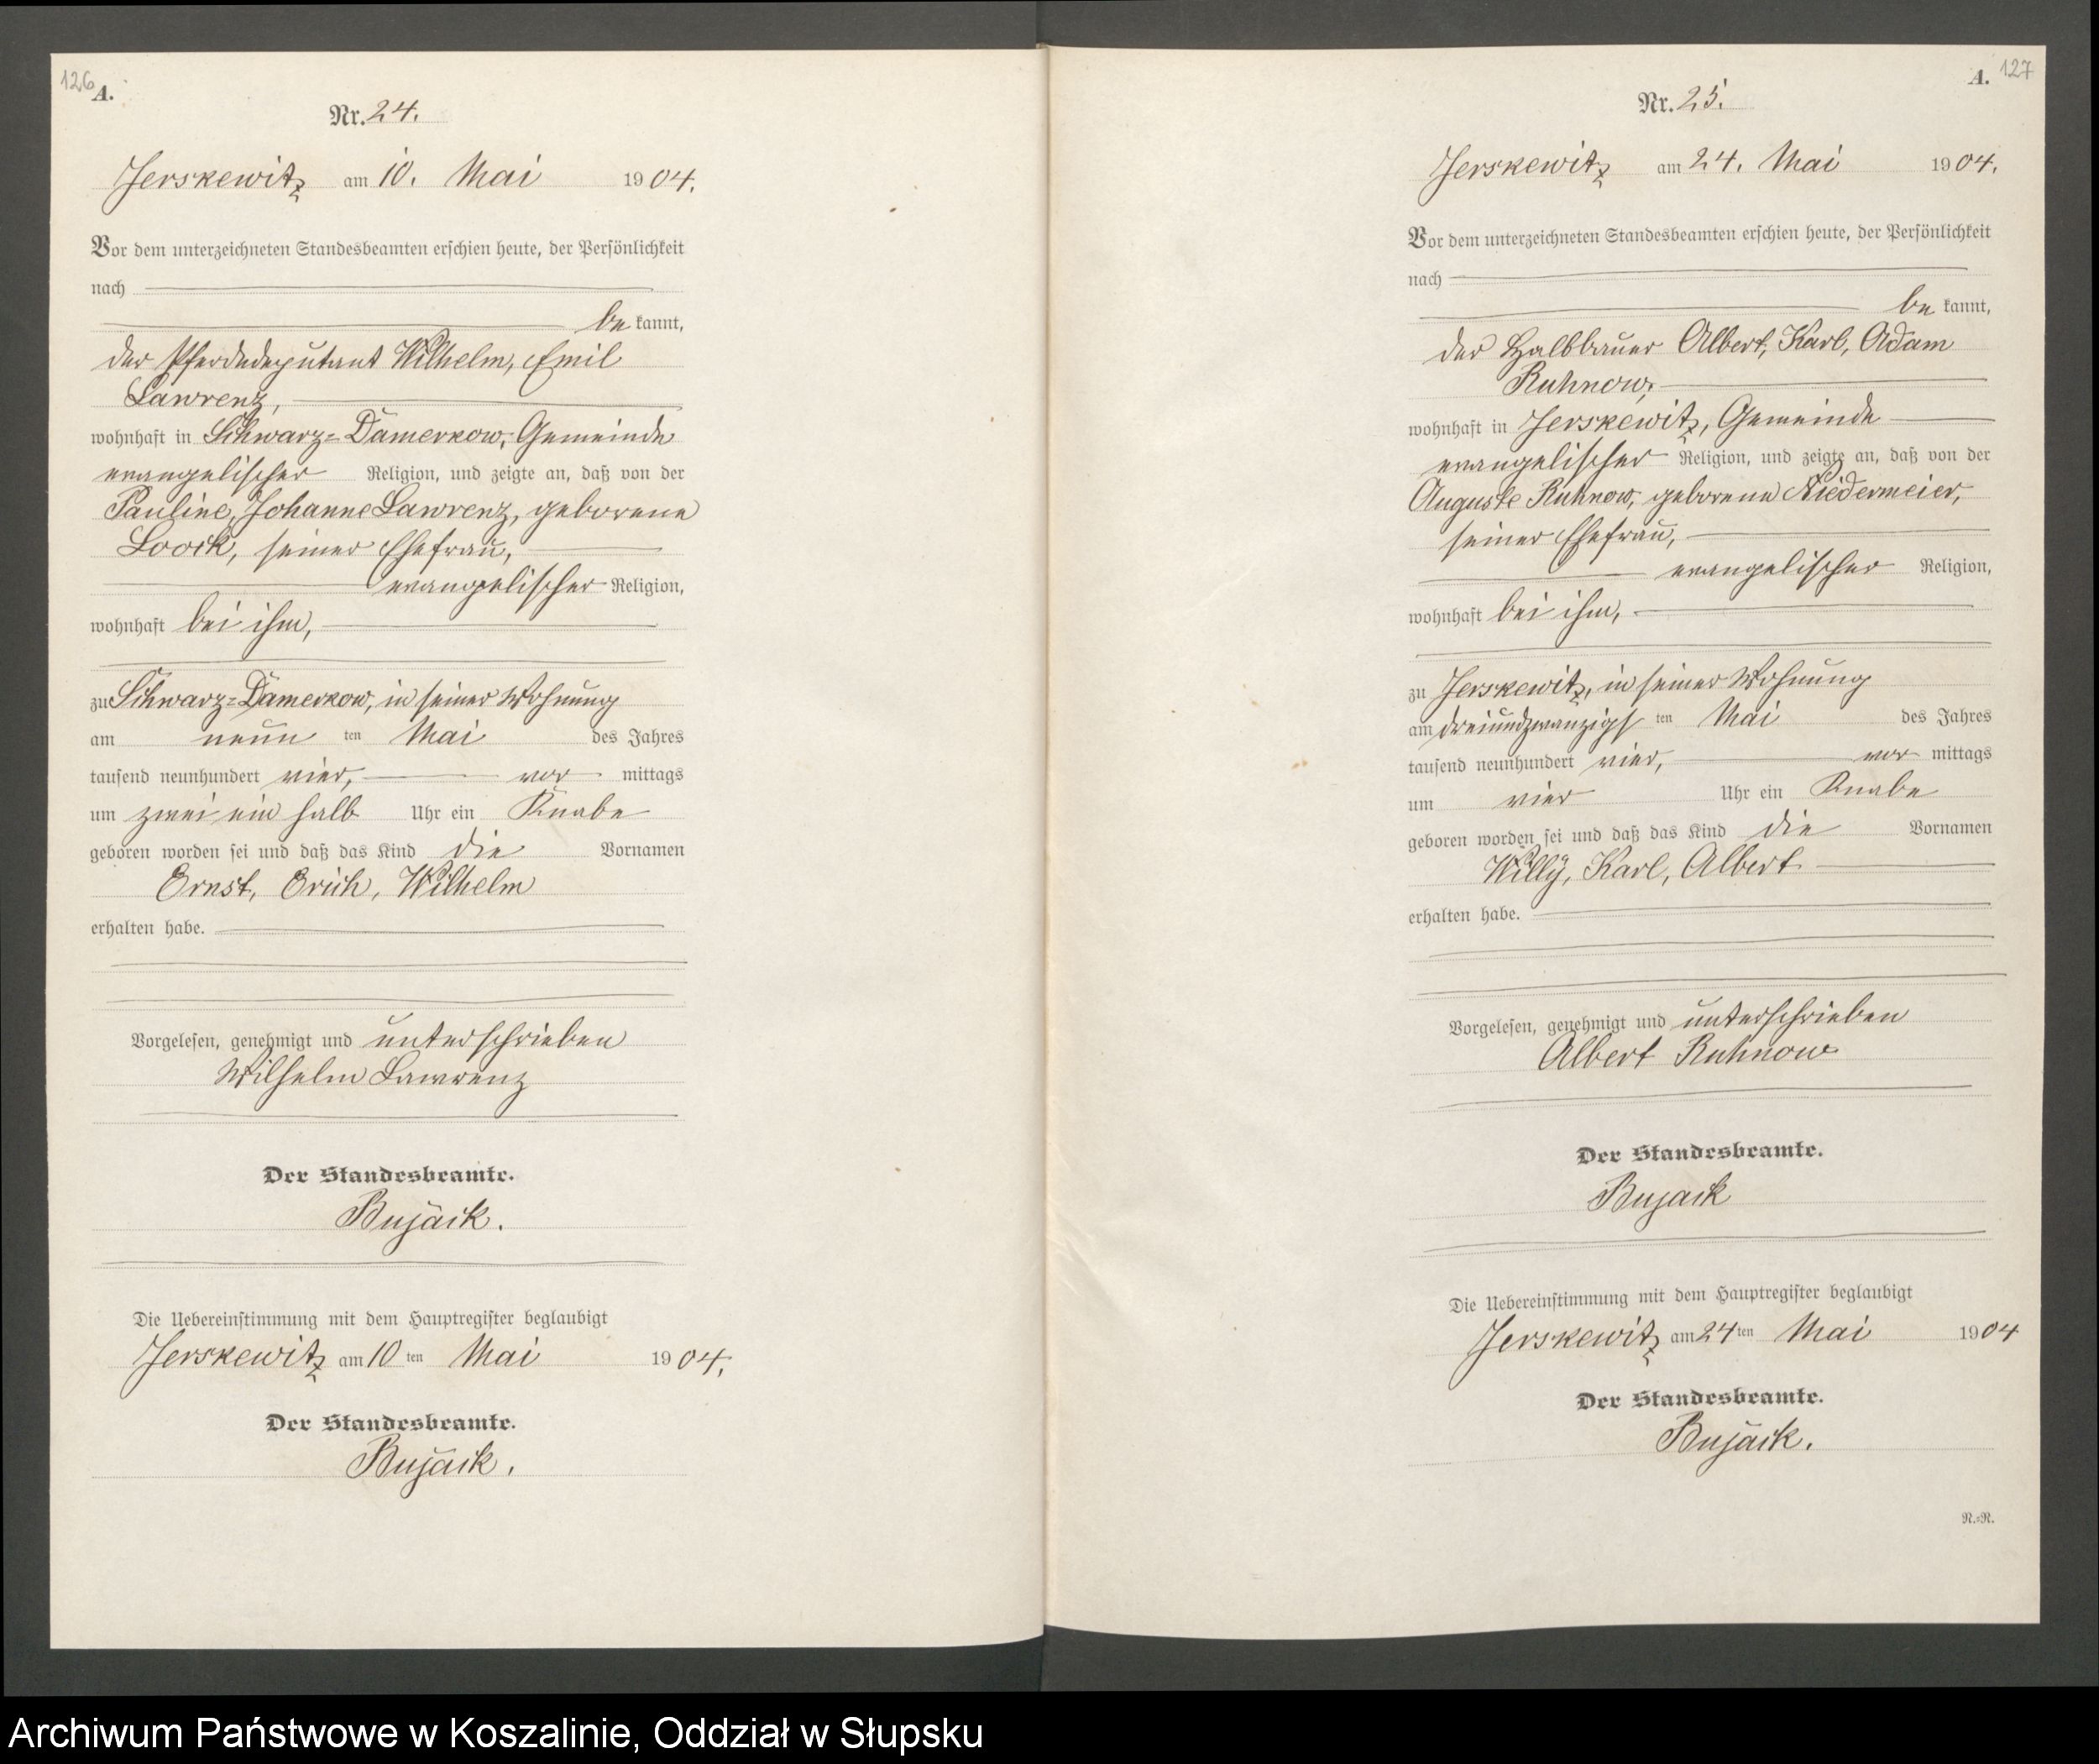 126
A.
Nr. 24.
Jerskewitz am 10. Mai 1904.
Vor dem unterzeichneten Standesbeamten erschien heute, der Persönlichkeit
nach
be kannt,
der Pferdedeputant Wilhelm, Emil
Lawrenz,
wohnhaft in Schwarz=Damerkow, Gemeinde
evangelischer Religion, und zeigte an, daß von der
Pauline, Johanne Lawrenz, geborene
Loock, seiner Ehefrau,
evangelischer Religion,
wohnhaft bei ihm,
zu Schwarz=Damerkow, in seiner Wohnung
am neun ten Mai des Jahres
tausend neunhundert vier, vor mittags
um zwei ein halb Uhr ein Knabe
geboren worden sei und daß das Kind die Vornamen
Ernst, Erich, Wilhelm
erhalten habe.
Vorgelesen, genehmigt und unterschrieben
Wilhelm Lawrenz
Der Standesbeamte.
Bujack.
Die Uebereinstimmung mit dem Hauptregister beglaubigt
Jerskewitz am 10 ten Mai 1904.
Der Standesbeamte.
Bujack.
A. 127
Nr. 25.
Jerskewitz am 24. Mai 1904.
Vor dem unterzeichneten Standesbeamten erschien heute, der Persönlichkeit
nach
be kannt,
der Halbbauer Albert, Karl, Adam
Ruhnow,
wohnhaft in Jerskewitz, Gemeinde
evangelischer Religion, und zeigte an, daß von der
Auguste Ruhnow, geborene Niedermeier,
seiner Ehefrau,
evangelischer Religion,
wohnhaft bei ihm,
zu Jerskewitz, in seiner Wohnung
am dreiundzwanzigs ten Mai des Jahres
tausend neunhundert vier, vor mittags
um vier Uhr ein Knabe
geboren worden sei und daß das Kind die Vornamen
Willy, Karl, Albert
erhalten habe.
Vorgelesen, genehmigt und unterschrieben
Albert Ruhnow
Der Standesbeamte.
Bujack
Die Uebereinstimmung mit dem Hauptregister beglaubigt
Jerskewitz am 24 ten Mai 1904
Der Standesbeamte.
Bujack.
R.=R.
Archiwum Państwowe w Koszalinie, Oddział w Słupsku